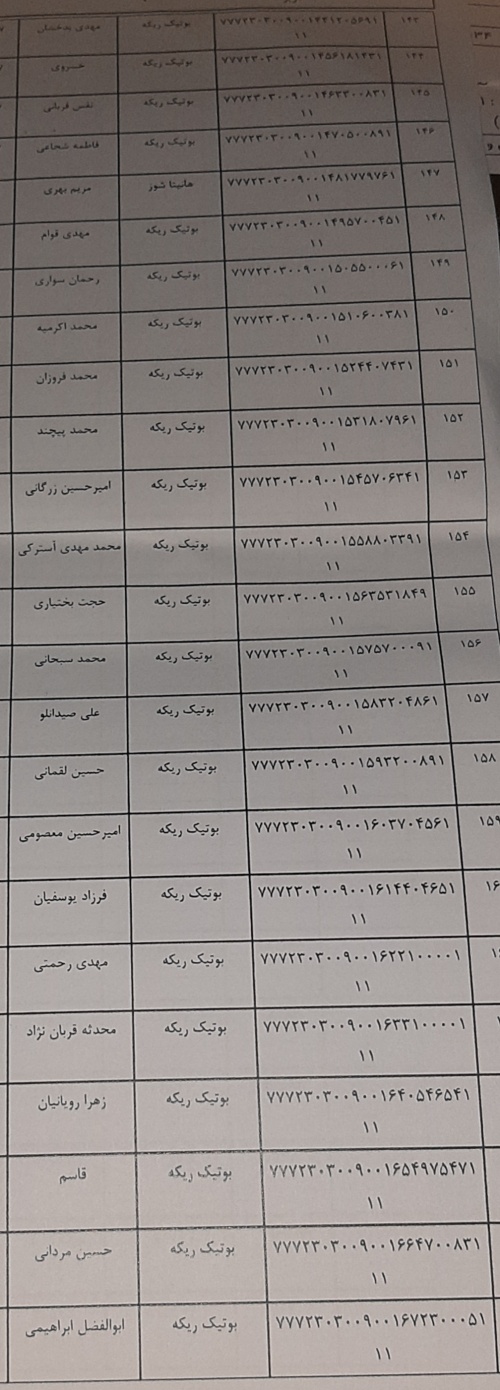 ۱۴۳ ۷۷۷۲۳۰۳۰۰۹۰۰۱۴۳۱۲۰۵۶۹۱ بوتیک ریکه مهدی بدخشان
۱۱
۱۴۴ ۷۷۷۲۳۰۳۰۰۹۰۰۱۴۵۶۱۸۱۴۳۱ بوتیک ریکه خسروی
۱۱
۱۴۵ ۷۷۷۲۳۰۳۰۰۹۰۰۱۴۶۳۳۰۰۸۳۱ بوتیک ریکه نفس قربانی
۱۱
۱۴۶ ۷۷۷۲۳۰۳۰۰۹۰۰۱۴۷۰۵۰۰۸۹۱ بوتیک ریکه فاطمه شجاعی
۱۱
۱۴۷ ۷۷۷۲۳۰۳۰۰۹۰۰۱۴۸۱۷۷۹۷۶۱ هانیتا شوز مریم بهری
۱۱
۱۴۸ ۷۷۷۲۳۰۳۰۰۹۰۰۱۴۹۵۷۰۰۴۵۱ بوتیک ریکه مهدی قوام
۱۱
۱۴۹ ۷۷۷۲۳۰۳۰۰۹۰۰۱۵۰۵۵۰۰۰۶۱ بوتیک ریکه رحمان سواری
۱۱
۱۵۰ ۷۷۷۲۳۰۳۰۰۹۰۰۱۵۱۰۶۰۰۳۸۱ بوتیک ریکه محمد اکرمیه
۱۱
۱۵۱ ۷۷۷۲۳۰۳۰۰۹۰۰۱۵۲۴۴۰۷۴۳۱ بوتیک ریکه محمد فروزان
۱۱
۱۵۲ ۷۷۷۲۳۰۳۰۰۹۰۰۱۵۳۱۸۰۷۹۶۱ بوتیک ریکه محمد پیچند
۱۱
۱۵۳ ۷۷۷۲۳۰۳۰۰۹۰۰۱۵۴۵۷۰۶۳۴۱ بوتیک ریکه امیرحسین زرگانی
۱۱
۱۵۴ ۷۷۷۲۳۰۳۰۰۹۰۰۱۵۵۸۸۰۳۳۹۱ بوتیک ریکه محمد مهدی آسترکی
۱۱
۱۵۵ ۷۷۷۲۳۰۳۰۰۹۰۰۱۵۶۳۵۳۱۸۴۹ بوتیک ریکه حجت بختیاری
۱۱
۱۵۶ ۷۷۷۲۳۰۳۰۰۹۰۰۱۵۷۵۷۰۰۰۹۱ بوتیک ریکه محمد سبحانی
۱۱
۱۵۷ ۷۷۷۲۳۰۳۰۰۹۰۰۱۵۸۳۲۰۴۸۶۱ بوتیک ریکه علی صیدانلو
۱۱
۱۵۸ ۷۷۷۲۳۰۳۰۰۹۰۰۱۵۹۳۲۰۰۸۹۱ بوتیک ریکه حسین لقمانی
۱۱
۱۵۹ ۷۷۷۲۳۰۳۰۰۹۰۰۱۶۰۳۷۰۴۵۶۱ بوتیک ریکه امیرحسین معصومی
۱۱
۷۷۷۲۳۰۳۰۰۹۰۰۱۶۱۴۴۰۴۶۵۱ بوتیک ریکه فرزاد یوسفیان
۱۱
۷۷۷۲۳۰۳۰۰۹۰۰۱۶۲۲۱۰۰۰۰۱ بوتیک ریکه مهدی رحمتی
۱۱
۷۷۷۲۳۰۳۰۰۹۰۰۱۶۳۳۱۰۰۰۰۱ بوتیک ریکه محدثه قربان نژاد
۱۱
۷۷۷۲۳۰۳۰۰۹۰۰۱۶۴۰۵۴۶۵۴۱ بوتیک ریکه زهرا رویانیان
۱۱
۷۷۷۲۳۰۳۰۰۹۰۰۱۶۵۴۹۷۵۴۷۱ بوتیک ریکه قاسم
۱۱
۷۷۷۲۳۰۳۰۰۹۰۰۱۶۶۴۷۰۰۸۳۱ بوتیک ریکه حسین مردانی
۱۱
۷۷۷۲۳۰۳۰۰۹۰۰۱۶۷۲۳۰۰۰۵۱ بوتیک ریکه ابوالفضل ابراهیمی
۱۱